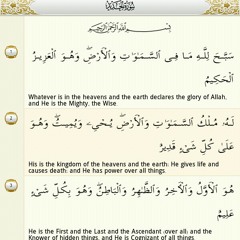 سورة الحديد
بِسْمِ اللَّهِ الرَّحْمَٰنِ الرَّحِيمِ
1
سَبَّحَ لِلَّهِ مَا فِى ٱلسَّمَٰوَٰتِ وَٱلْأَرْضِ ۖ وَهُوَ ٱلْعَزِيزُ
ٱلْحَكِيمُ
Whatever is in the heavens and the earth declares the glory of Allah,
and He is the Mighty, the Wise.
2
لَهُۥ مُلْكُ ٱلسَّمَٰوَٰتِ وَٱلْأَرْضِ ۖ يُحْىِۦ وَيُمِيتُ ۖ وَهُوَ
عَلَىٰ كُلِّ شَىْءٍ قَدِيرٌ
His is the kingdom of the heavens and the earth; He gives life and
causes death; and He has power over all things.
3
هُوَ ٱلْأَوَّلُ وَٱلْءَاخِرُ وَٱلظَّٰهِرُ وَٱلْبَاطِنُ ۖ وَهُوَ بِكُلِّ شَىْءٍ
عَلِيمٌ
He is the First and the Last and the Ascendant (over all) and the
Knower of hidden things, and He is Cognizant of all things